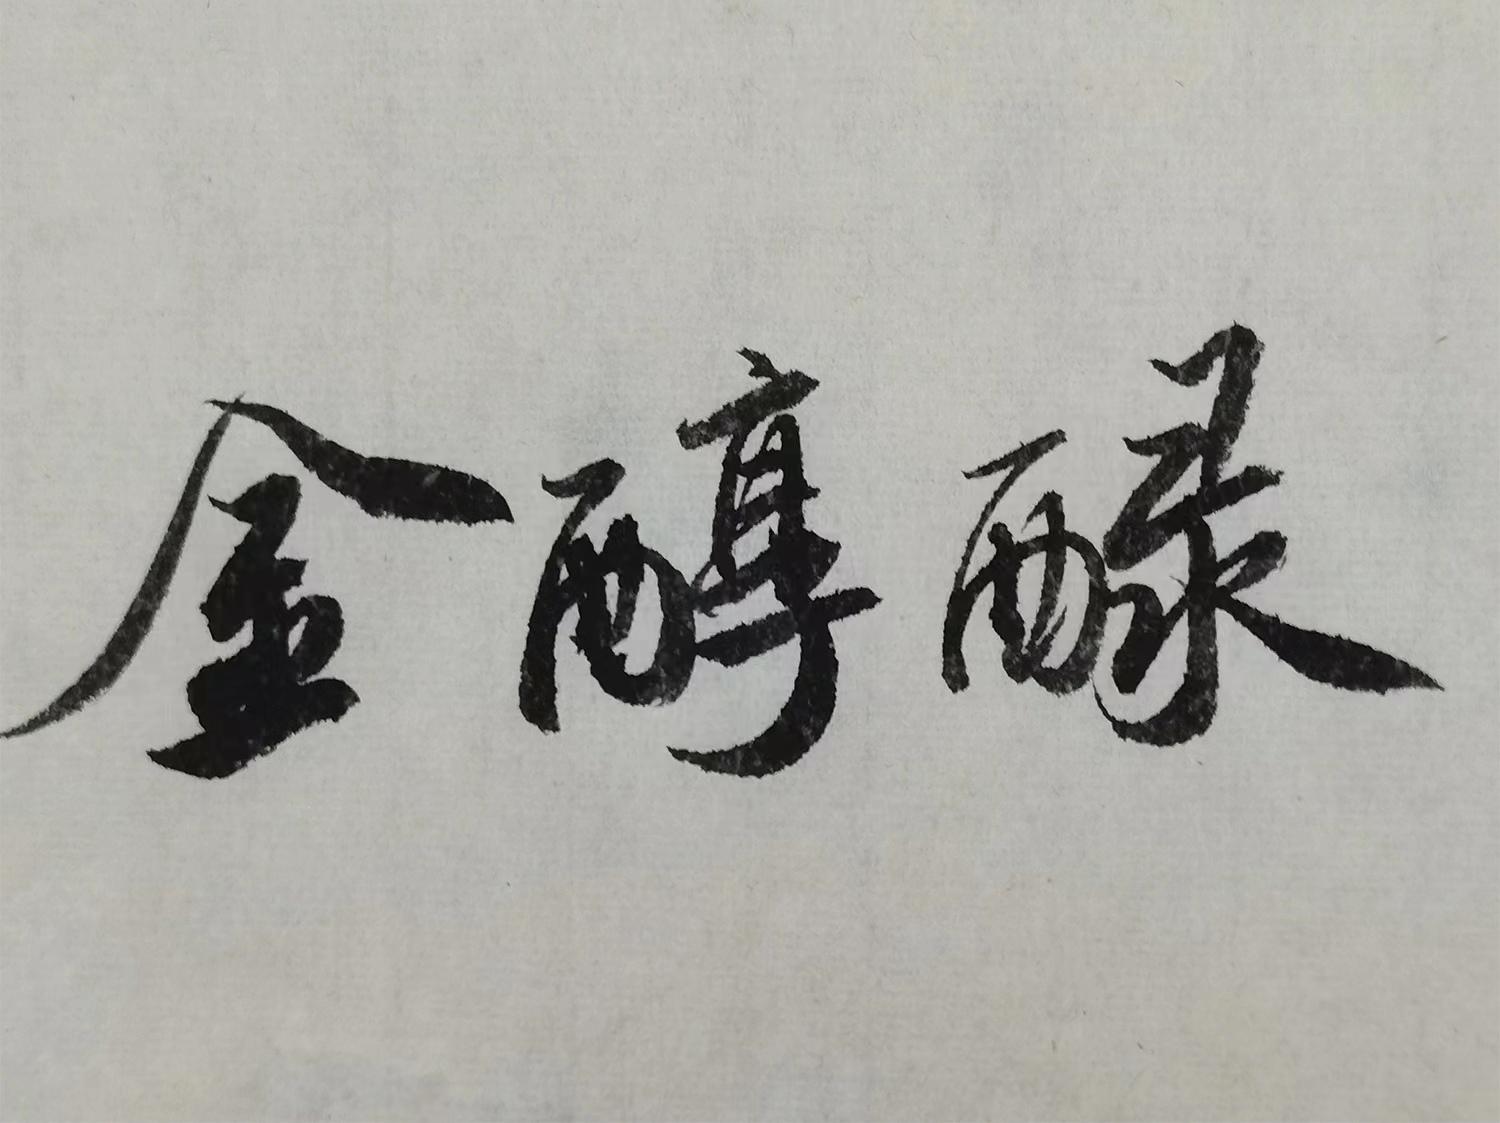 金醇醁